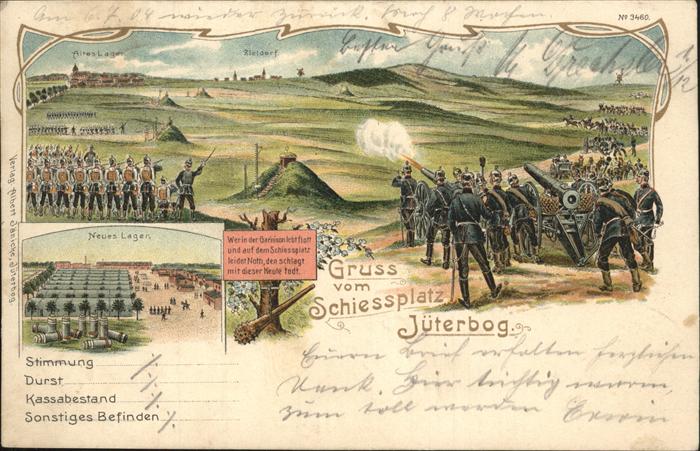 Am 6.7.04 wieder zurück. Noch 8 Wochen.
No 3460.
Altes Lager.
Zieldorf.
Bester Gruß
Verlag Albert Jänicke, Jüterbog.
Neues Lager.
Wer in der Garnison lebt flott
und auf dem Schiessplatz
leidet Noth, den schlagt
mit dieser Keule todt.
Gruss
vom
Schiessplatz
Jüterbog.
Stimmung /.
Durst /.
Kassabestand /.
Sonstiges Befinden /.
Euern Brief erhalten herzlichen
Dank. Hier tüchtig warm,
zum toll werden Erwin